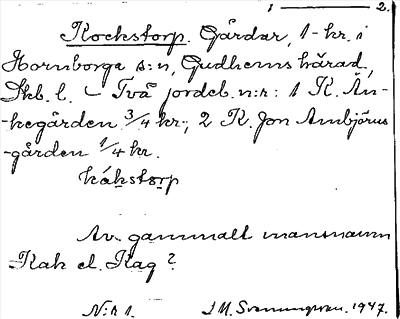 1 — 2.
Kockstorp. Gårdar, 1-kr. i
Hornborga s:n, Gudhems härad,
Skb. l. – Två jordeb. n:r: 1 K. Än-
kegården 3/4 kr.; 2 K. Jon Ambjörus
-gården 1/4 kr.
kákstorp
Av gammalt mansnamn
Kak el. Kag?
N:r 1. J M. Svenungsson. 1947.